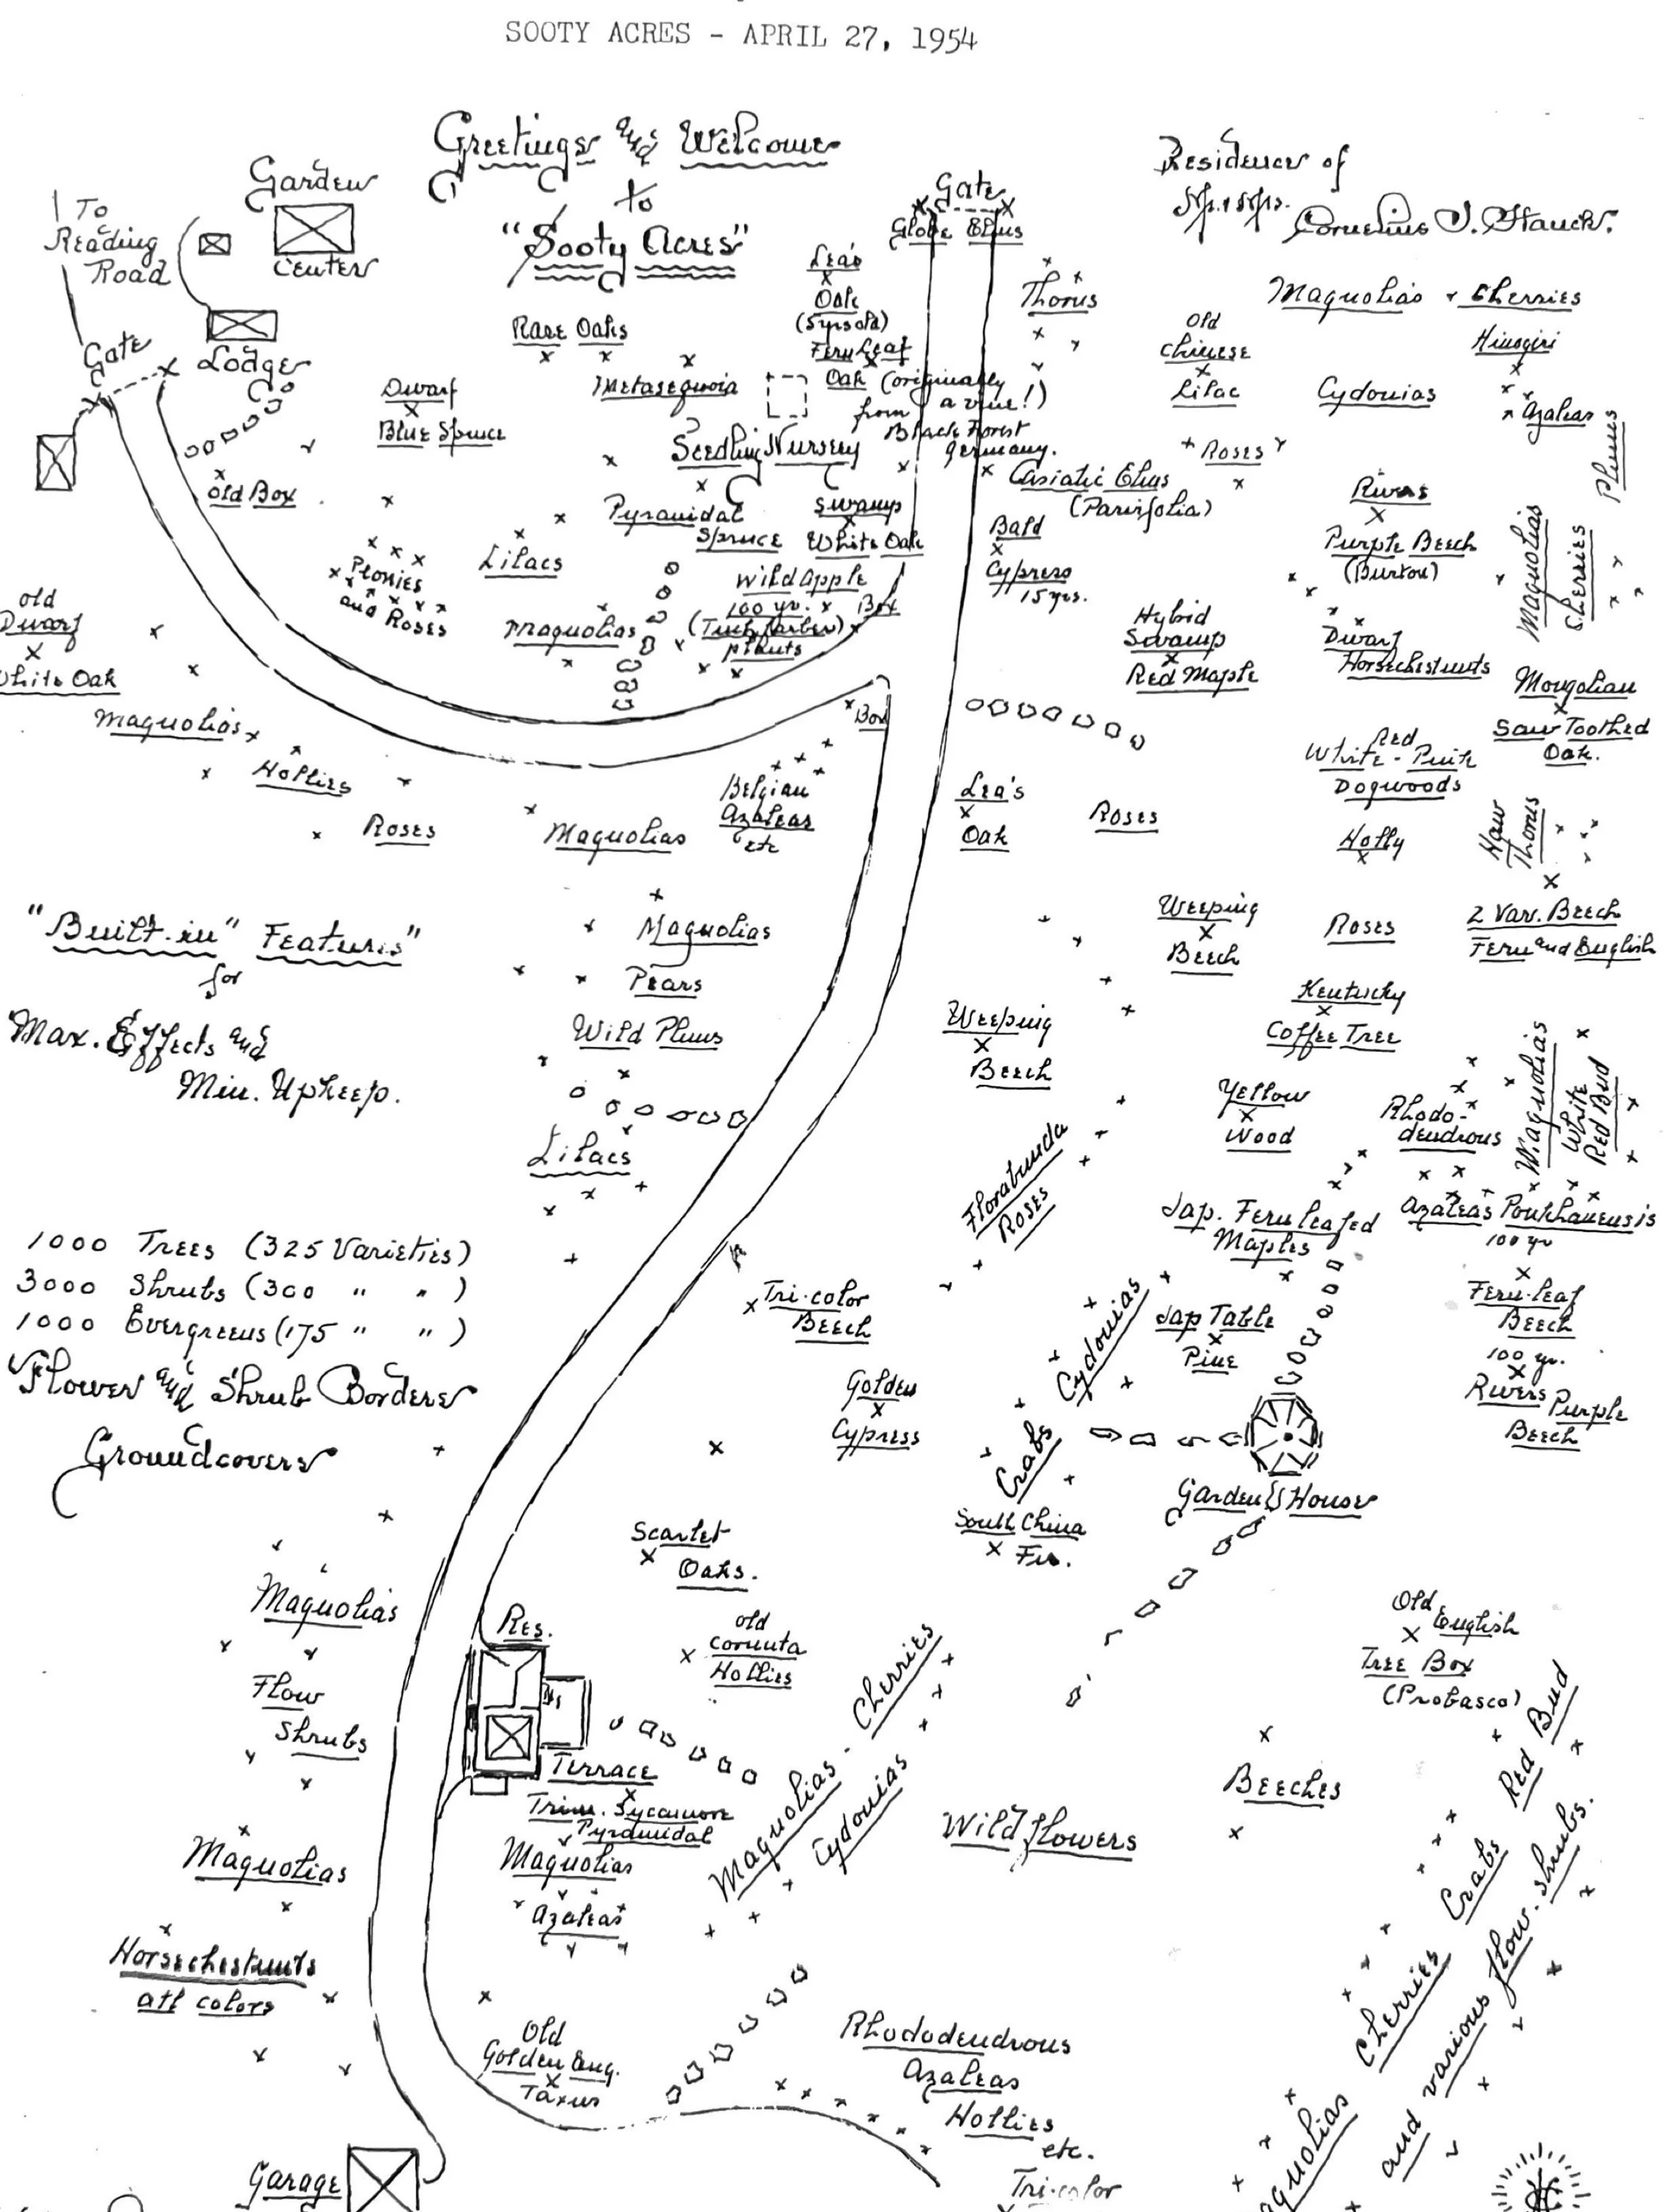 SOOTY ACRES - APRIL 27, 1954
Greetings and Welcome
to
"Sooty Acres"
Residence of
Cornelius J. Hauck.
To
Reading
Road
Garden
Center
Gate
Lodge
Gate
Globe Elms
Lea's
Oak
(5 yrs old)
Fern Leaf
Oak (originally
from a vine!)
Black Forest
Germany.
Rare Oaks
Metasequoia
Dwarf
Blue Spruce
Seedling Nursery
Old Box
Pyramidal
Spruce
Swamp
White Oak
Lilacs
Peonies
and Roses
Wild Apple
100 yr.
plants
Box
Magnolias
Old
Dwarf
White Oak
Magnolias
Hollies
Roses
Magnolias
Belgian
Azaleas
etc
Box
Thorns
Magnolias + Cherries
Old
Chinese
Lilac
Hinogiri
Azaleas
Cydonias
Plums
Roses
Asiatic Elms
(Parvifolia)
Bald
Cypress
15 yrs.
Rivers
Purple Beech
(Burton)
Magnolias
Cherries
Hybrid
Swamp
Red Maple
Dwarf
Horsechestnuts
Mongolian
Saw Toothed
Oak.
Red
White - Pink
Dogwoods
Lea's
Oak
Roses
Holly
Haw
Thorns
Weeping
Beech
Roses
2 Var. Beech
Fern and English
"Built-in" Features"
for
Max. Effects and
Min. Upkeep.
Magnolias
Pears
Wild Plums
Lilacs
Weeping
Beech
Kentucky
Coffee Tree
Yellow
Wood
Rhodo-
dendrons
Magnolias
White
Red Bud
Florabunda
Roses
Jap. Fern leafed
Maples
Azaleas Poukhanensis
100 yr
Fern-leaf
Beech
100 yr.
Rivers Purple
Beech
1000 Trees (325 Varieties)
3000 Shrubs (300 " " )
1000 Evergreens (175 " " )
Flower and Shrub Borders
Groundcovers
Tri-color
Beech
Golden
Cypress
Cydonias
Crabs
Jap Table
Pine
Garden House
South China
Fir.
Scarlet
Oaks.
Magnolias
Flow
Shrubs
Res.
Old
Cornuta
Hollies
Old English
Tree Box
(Probasco)
Terrace
Trim. Sycamore
Pyramidal
Magnolias
Azaleas
Magnolias - Cherries
Cydonias
Wildflowers
Beeches
Red Bud
Crabs
Cherries
Magnolias
and various flow. shrubs.
Magnolias
Horsechestnuts
all colors
Old
Golden Eng.
Taxus
Rhododendrons
Azaleas
Hollies
etc.
Tri-color
Garage